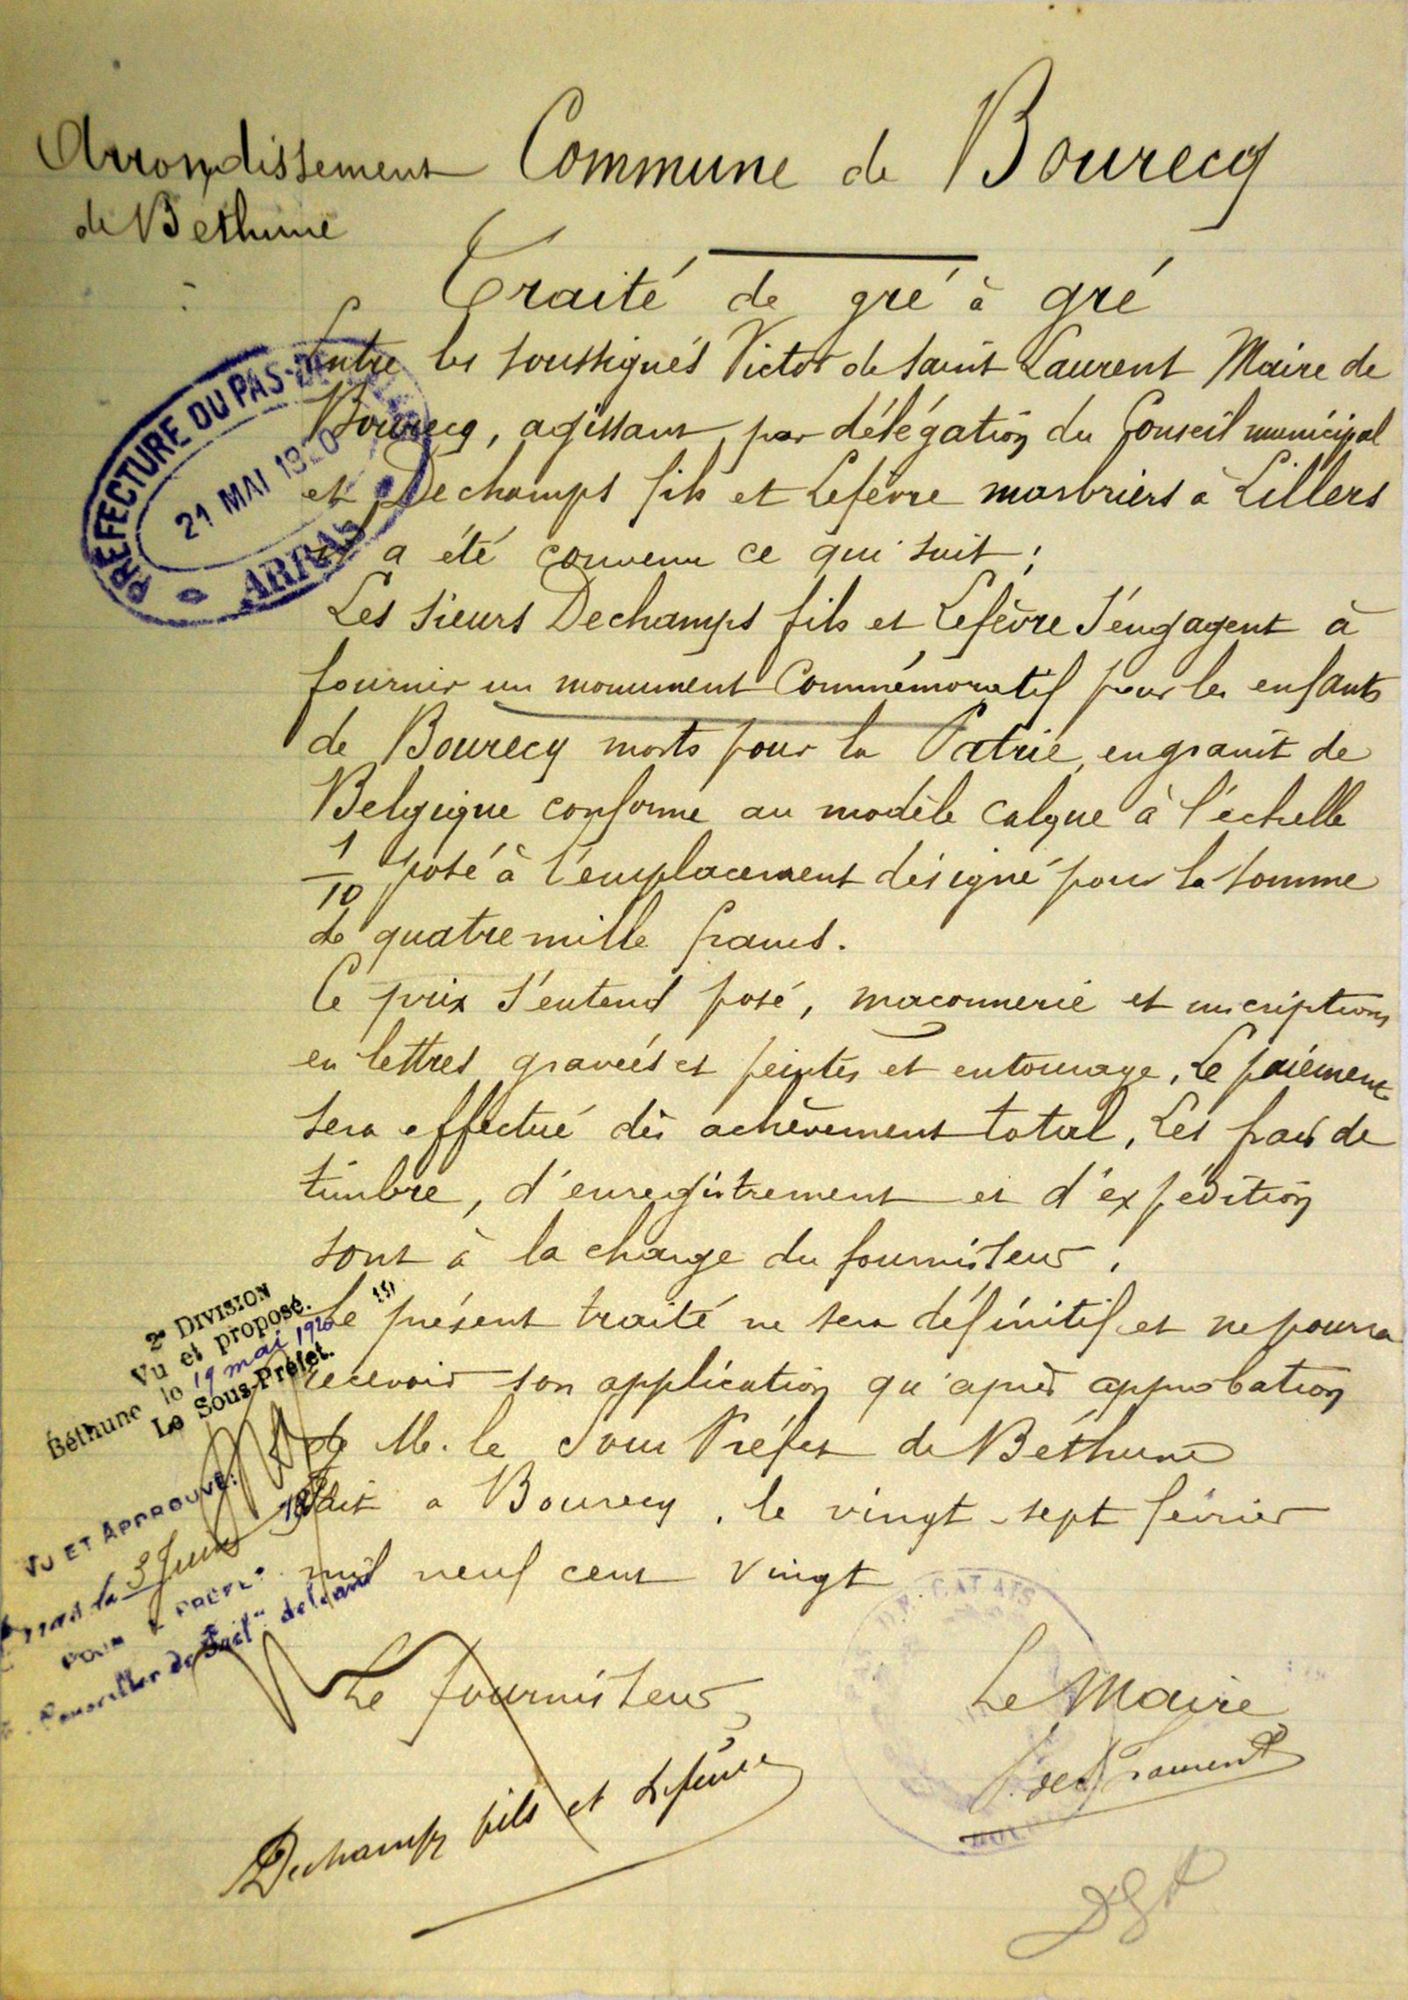 Arrondissement
de Béthune
Commune de Bourecq
Traité de gré à gré
Entre les soussignés Victor de Saint Laurent Maire de
Bourecq, agissant par délégation du Conseil municipal
et Dechamps fils et Lefèvre marbriers à Lillers
il a été convenu ce qui suit :
Les sieurs Dechamps fils et Lefèvre s'engagent à
fournir un monument Commémoratif pour les enfants
de Bourecq morts pour la Patrie, en granit de
Belgique conforme au modèle calque à l'échelle
1/10 posé à l'emplacement désigné pour la somme
de quatre mille francs.
Ce prix s'entend posé, maçonnerie et inscriptions
en lettres gravées et peintes et entourage. Le paiement
sera effectué dès achèvement total. Les frais de
timbre, d'enregistrement et d'expédition
sont à la charge du fournisseur.
Le présent traité ne sera définitif et ne pourra
recevoir son application qu'après approbation
de M. le Sous Préfet de Béthune
Fait à Bourecq, le vingt-sept février
mil neuf cent vingt
Le fournisseur
Le Maire
Dechamps fils et Lefèvre
V. de St Laurent
PRÉFECTURE DU PAS-DE-
21 MAI 1920
ARRAS
2e DIVISION
Vu et proposé.
Béthune le 19 mai 1920
Le Sous-Préfet.
VU ET APPROUVÉ:
3 Juin
POUR LE PRÉFET
Conseiller de Préf. délégué